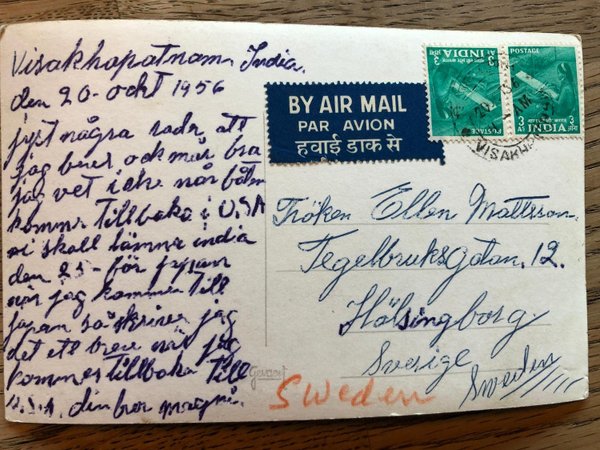 Visakhapatnam India.
den 20-okt 1956
jyst några rader att
jag lever och mår bra
jag vet iche når båten
kommer tillbaka i U.S.A
vi skall lämna india
den 25- för japan
når jag kommer till
japan så skriver jag
det ett brev når jag
kommer tillbaka till
U.S.A. din bror magni.
BY AIR MAIL
PAR AVION
हवाई डाक से
POSTAGE
3 AS
INDIA
POSTAGE
3 AS
INDIA
VISAKH
Fröken Ellen Mattsson.
Tegelbruksgatan. 12.
Hälsingborg
Sverige
Sweden
Sweden
Gevaert